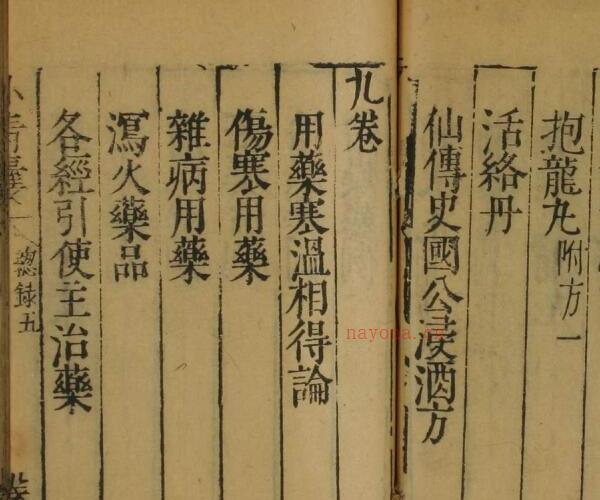 抱龍丸附方一
活絡丹
仙傳史國公浸酒方
九卷
用藥寒溫相得論
傷寒用藥
雜病用藥
瀉火藥品
各經引使主治藥
小青囊 總錄五
nayona.cn